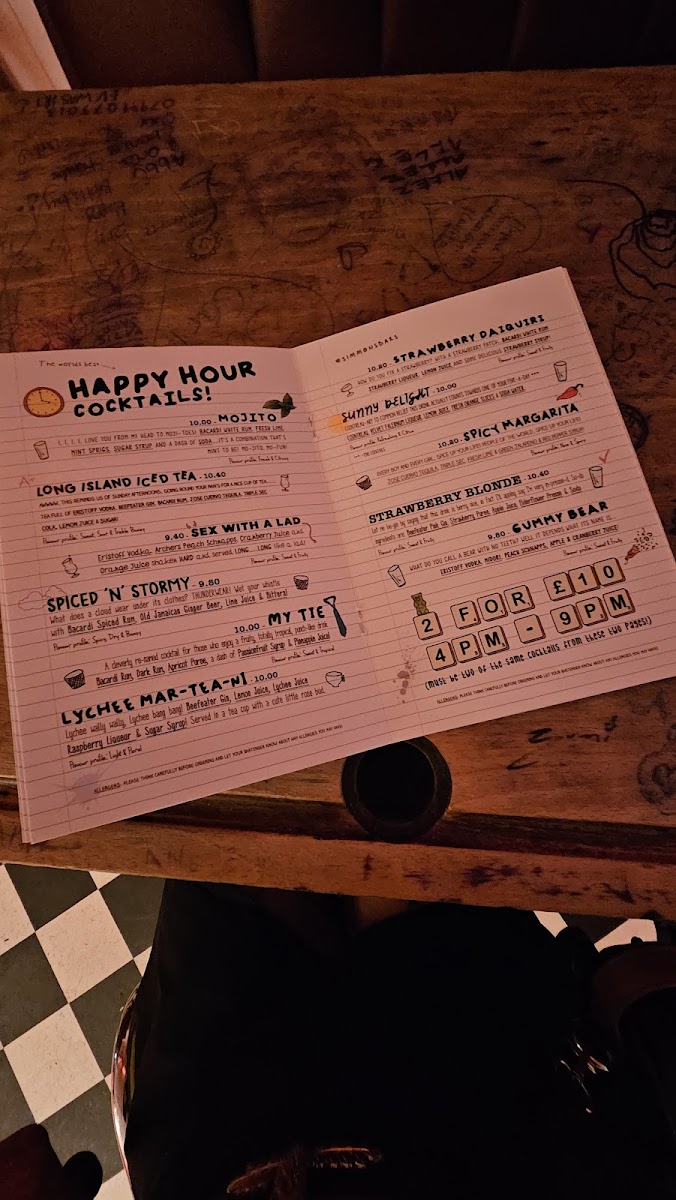 The worlds best
HAPPY HOUR
COCKTAILS!
10.00 - MOJITO
I, I, I, I, LOVE YOU FROM MY HEAD TO MOJI-TOES! BACARDI WHITE RUM, FRESH LIME,
MINT SPRIGS, SUGAR SYRUP AND A DASH OF SODA... IT'S A COMBINATION THAT'S
MINT TO BE! MO-JITO, MO-FUN!
Flavour profile: Fresh & Citrusy
LONG ISLAND ICED TEA - 10.40
THIS REMINDS US OF SUNDAY AFTERNOONS, GOING ROUND YOUR NAN'S FOR A NICE CUP OF TEA.
TEA FULL OF ERISTOFF VODKA, BEEFEATER GIN, BACARDI RUM, JOSE CUERVO TEQUILA, TRIPLE SEC,
COLA, LEMON JUICE & SUGAR!
Flavour profile: Sweet, Sour &
9.40 - SEX WITH A LAD
Eristoff Vodka, Archers Peach Schnapps, Cranberry Juice and
Orange Juice shaken HARD and served LONG... LONG like a lad!
Flavour profile: Sweet & Fruity
SPICED 'N' STORMY - 9.80
What does a cloud wear under its clothes? THUNDERWEAR! Wet your whistle
with Bacardi Spiced Rum, Old Jamaican Ginger Beer, Lime Juice & Bitters!
Flavour profile: Spicy, Dry &
10.00 - MY TIE
A cleverly re-named cocktail for those who enjoy a fruity, totally tropical, punch-like drink
Bacardi Rum, Dark Rum, Apricot Puree, a dash of Passionfruit Syrup & Pineapple Juice!
Flavour profile: Sweet & Tropical
LYCHEE MAR-TEA-NI - 10.00
Lychee wally wally, Lychee bang bang! Beefeater Gin, Lemon Juice, Lychee Juice
Raspberry Liqueur & Sugar Syrup! Served in a tea cup with a cute little rose bud.
Flavour profile: Light & Floral
ALLERGENS: PLEASE THINK CAREFULLY BEFORE ORDERING AND LET YOUR BARTENDER KNOW ABOUT ANY ALLERGIES YOU MAY HAVE!
#SIMMONSBARS
10.20 - STRAWBERRY DAIQUIRI
HOW DO YOU FIX A STRAWBERRY? WITH A STRAWBERRY PATCH. BACARDI WHITE RUM
STRAWBERRY LIQUEUR, LEMON JUICE AND SOME DELICIOUS STRAWBERRY SYRUP!
Flavour profile: Sweet & Fruity
SUNNY DELIGHT - 10.00
CONTRARY TO COMMON BELIEF THIS DRINK ACTUALLY COUNTS TOWARDS ONE OF YOUR FIVE-A-DAY ***
COINTREAU, VELVET FALERNUM LIQUEUR, LEMON JUICE, FRESH ORANGE SLICES & SODA WATER.
Flavour profile: & Citrus
10.20 - SPICY MARGARITA
EVERY BOY AND EVERY GIRL, SPICE UP YOUR LIFE! PEOPLE OF THE WORLD, SPICE UP YOUR LIFE!
JOSE CUERVO TEQUILA, TRIPLE SEC, FRESH LIME & GREEN JALAPENO & RED PEPPER SYRUP!
Flavour profile: & Spicy
STRAWBERRY BLONDE - 10.40
Let me begin by saying that this drink is berry nice, in fact I'll apple-y say I'm very
ingredients are: Beefeater Pink Gin, Strawberry Puree, Apple Juice, Elderflower Presse & Soda
Flavour profile: Sweet & Fruity
9.80 - GUMMY BEAR
WHAT DO YOU CALL A BEAR WITH NO TEETH? WELL IT DEPENDS WHAT ITS NAME IS...
ERISTOFF VODKA, MIDORI, PEACH SCHNAPPS, APPLE & CRANBERRY JUICE!
Flavour profile: Sweet & Fruity
2 FOR £10
4PM - 9PM
(MUST BE TWO OF THE SAME COCKTAILS FROM THESE TWO PAGES!)
ALLERGENS: PLEASE THINK CAREFULLY BEFORE ORDERING AND LET YOUR BARTENDER KNOW ABOUT ANY ALLERGIES YOU MAY HAVE!